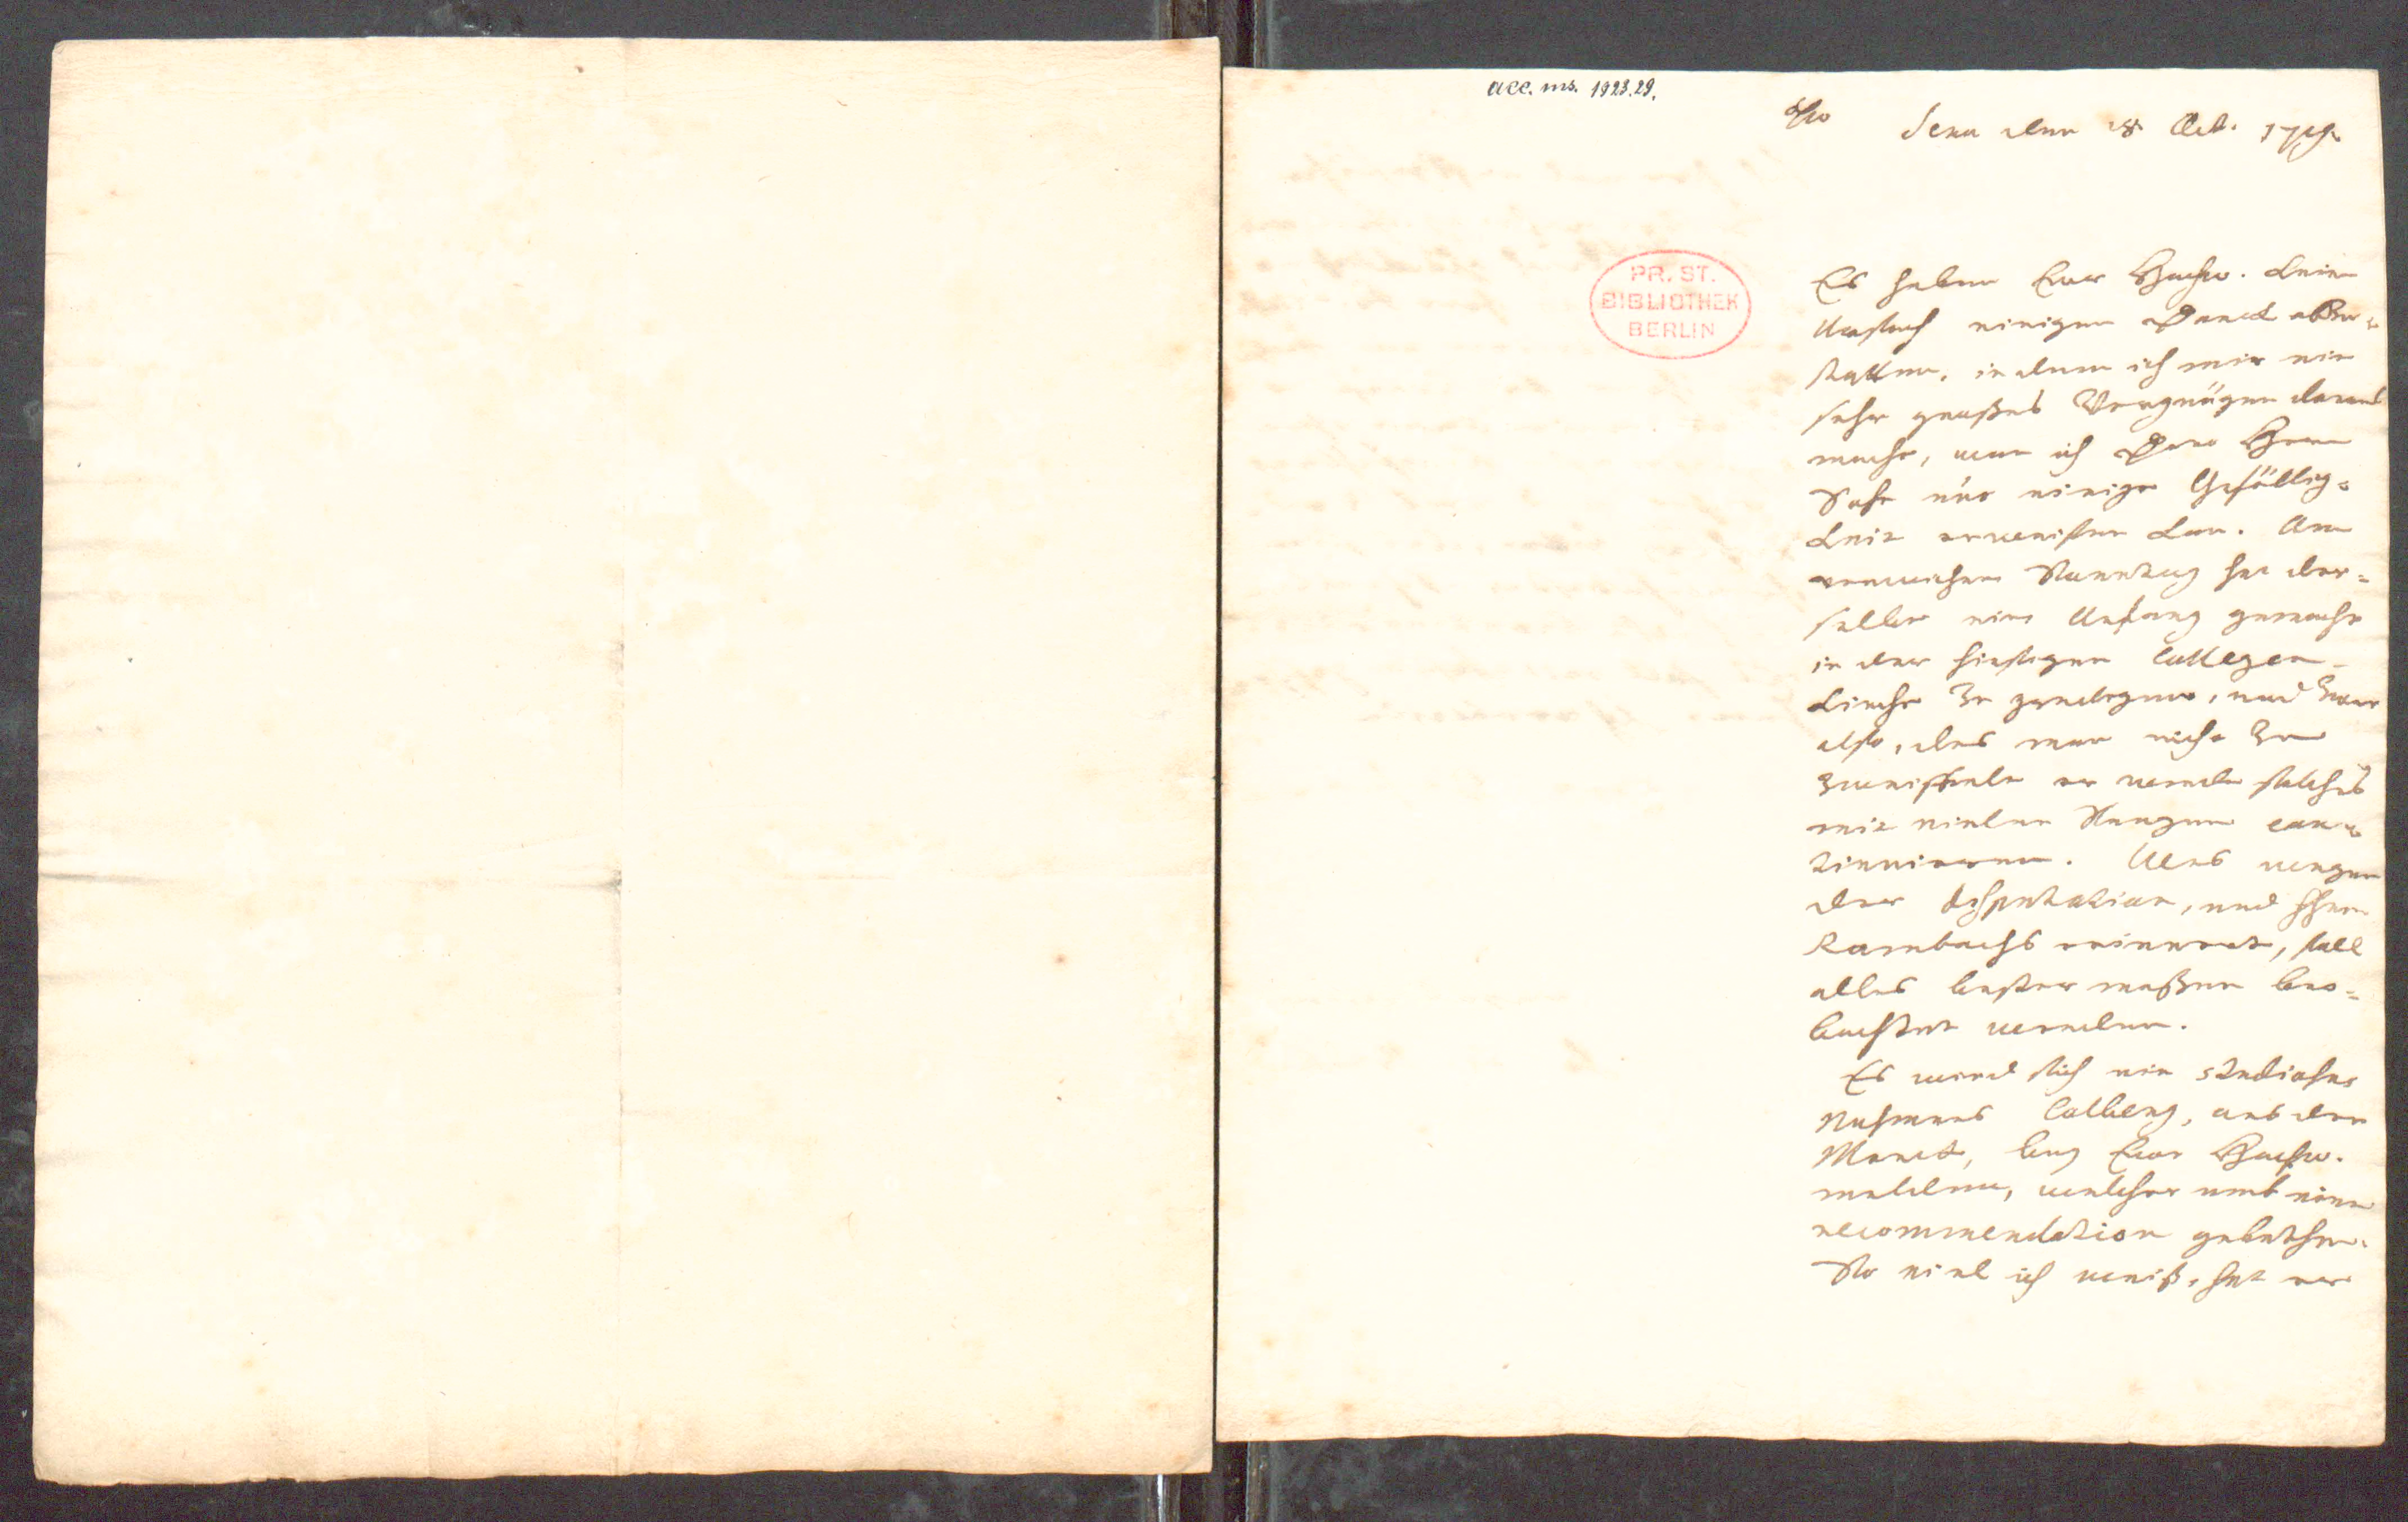 acc. ms. 1923.29.
Jena den 18 Oct. 1719.
PR. ST.
BIBLIOTHEK
BERLIN
Es haben Euer Hochw. keine
Ursach einigen Danck abzu-
statten, indem ich mir ein
sehr großes Vergnügen daraus
mache, wan ich Dero Herrn
Sohn nur einige Gefällig-
keit erweisen kan. Am
verwichenen Sonntag hat der-
selbe einen Anfang gemacht
in der hiesigen Collegen-
kirche zu predigen, und zwar
also, das man nicht zu
zweiffeln er werde solches
mit vielen Seegen con-
tinuieren. Was wegen
der disputation, und Herrn
Rambachs erinnert, soll
alles bester maßen beo-
bachtet werden.
Es wird sich ein studiosus
Nahmens Colberg, aus der
Marck, bey Euer Hochw.
melden, welcher umb eine
recommendation gebethen.
So viel ich weiß, hat er